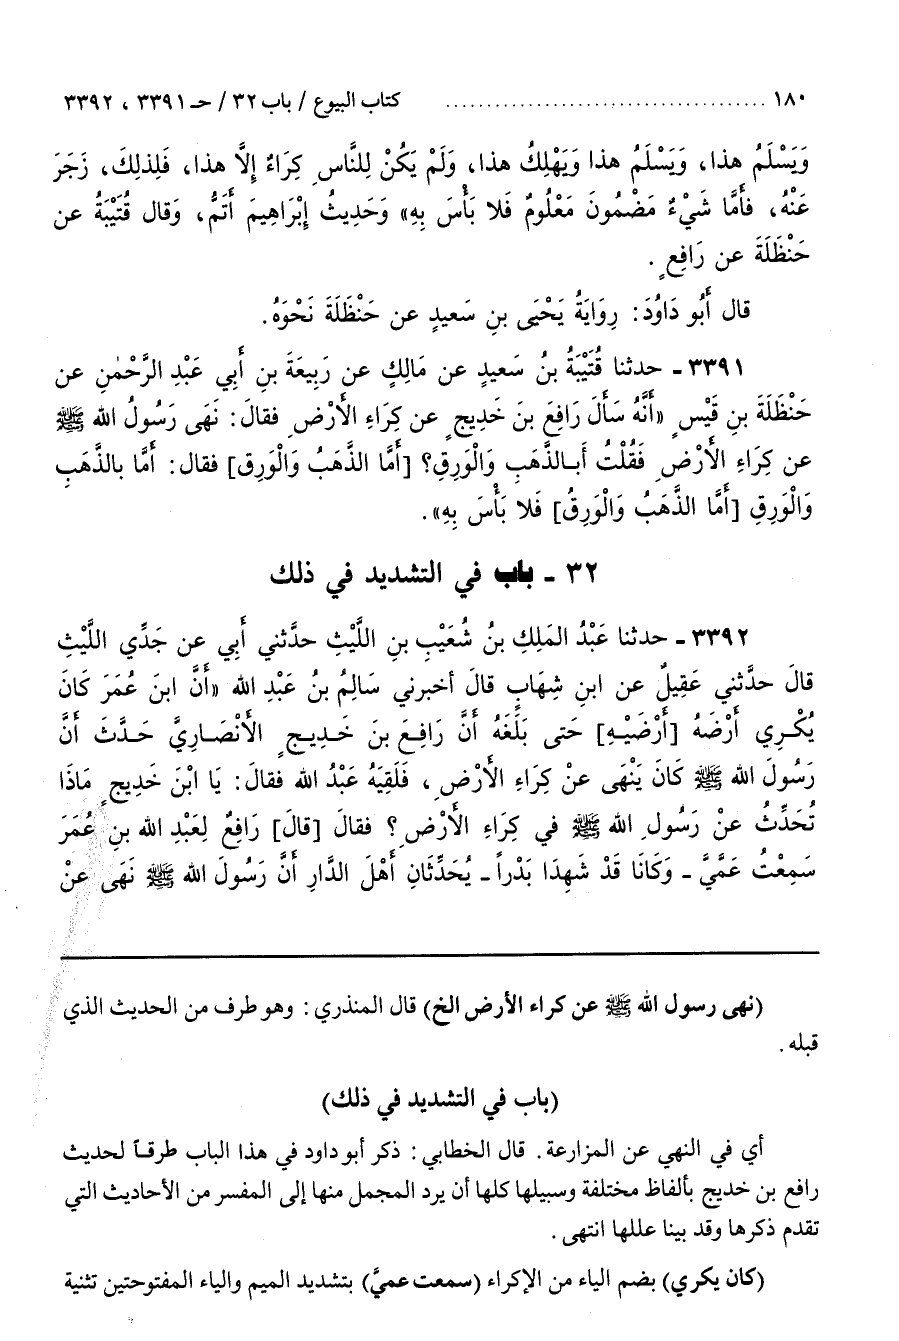 ١٨٠ ........................................ كتاب البيوع / باب ٣٢ / حـ ٣٣٩١ ، ٣٣٩٢
وَيَسْلَمُ هذا، وَيَسْلَمُ هذا وَيَهْلِكُ هذا، وَلَمْ يَكُنْ لِلنَّاسِ كِرَاءٌ إلَّا هذا، فَلِذلِكَ، زَجَرَ
عَنْهُ، فأَمَّا شَيْءٌ مَضْمُونَ مَعْلُومٌ فَلا بَأْسَ بِهِ» وَحَدِيثُ إبْرَاهِيمَ أَتَمُّ، وَقال قُتَيْبَةُ عن
حَنْظَلَةَ عن رَافِعٍ .
قال أَبُو دَاوُدَ: رِوَايَةُ يَحْيَى بنِ سَعيدٍ عن حَنْظَلَةَ نَحْوَهُ.
٣٣٩١ ـ حدثنا قُتَيْبَةُ بنُ سَعيدٍ عن مَالِكٍ عن رَبِيعَةَ بنِ أبي عَبْدِ الرَّحْمٰنِ عن
حَنْظَلَةَ بنِ قَيْسٍ «أنَّهُ سَأَلَ رَافِعَ بنَ خَدِيجٍ عن كِرَاءِ الأَرْضِ فقالَ: نَهَى رَسُولُ الله ﷺ
عن كِرَاءِ الأَرْضِ فَقُلْتُ أبـالذَّهَبِ وَالْوَرِقِ؟ [أمَّا الذَّهَبُ وَالْوَرِقِ] فقال: أمَّا بالذَّهَبِ
وَالْوَرِقِ [أمَّا الذَّهَبُ وَالْوَرِقُ] فَلا بَأْسَ بِهِ».
٣٢ ـ باب في التشديد في ذلك
٣٣٩٢ ـ حدثنا عَبْدُ المَلِكِ بنُ شُعَيْبِ بنِ اللَّيْثِ حدَّثني أبي عن جَدِّي اللَّيْثِ
قالَ حدَّثني عَقِيلٌ عن ابنِ شِهَابٍ قالَ أخبرني سَالِمُ بنُ عَبْدِ الله «أنَّ ابنَ عُمَرَ كَانَ
يُكْـرِي أرْضَهُ [أرْضَيْـهِ] حَتى بَلَغَهُ أنَّ رَافِعَ بنَ خَـدِيـجٍ الأنْصَـارِيَّ حَـدَّثَ أنَّ
رَسُولَ الله ﷺ كَانَ يَنْهَى عنْ كِرَاءِ الأَرْضِ، فَلَقِيَهُ عَبْدُ الله فقالَ: يَا ابْنَ خَدِيجٍ مَاذَا
تُحَدِّثُ عنْ رَسُولِ الله ﷺ في كِرَاءِ الأَرْضِ؟ فقالَ [قالَ] رَافِعٌ لِعَبْدِ الله بنِ عُمَرَ
سَمِعْتُ عَمَّيَّ ـ وَكَانَا قَدْ شَهِدَا بَدْراً ـ يُحَدِّثَانِ أهْلَ الدَّارِ أنَّ رَسُولَ الله ﷺ نَهَى عنْ
(نهى رسول الله ﷺ عن كراء الأرض الخ) قال المنذري: وهو طرف من الحديث الذي
قبله .
(باب في التشديد في ذلك)
أي في النهي عن المزارعة. قال الخطابي: ذكر أبو داود في هذا الباب طرقـاً لحديث
رافع بن خديج بألفاظ مختلفة وسبيلها كلها أن يرد المجمل منها إلى المفسر من الأحاديث التي
تقدم ذكرها وقد بينا عللها انتهى.
(كان يكري) بضم الياء من الإكراء (سمعت عميَّ) بتشديد الميم والياء المفتوحتين تثنية